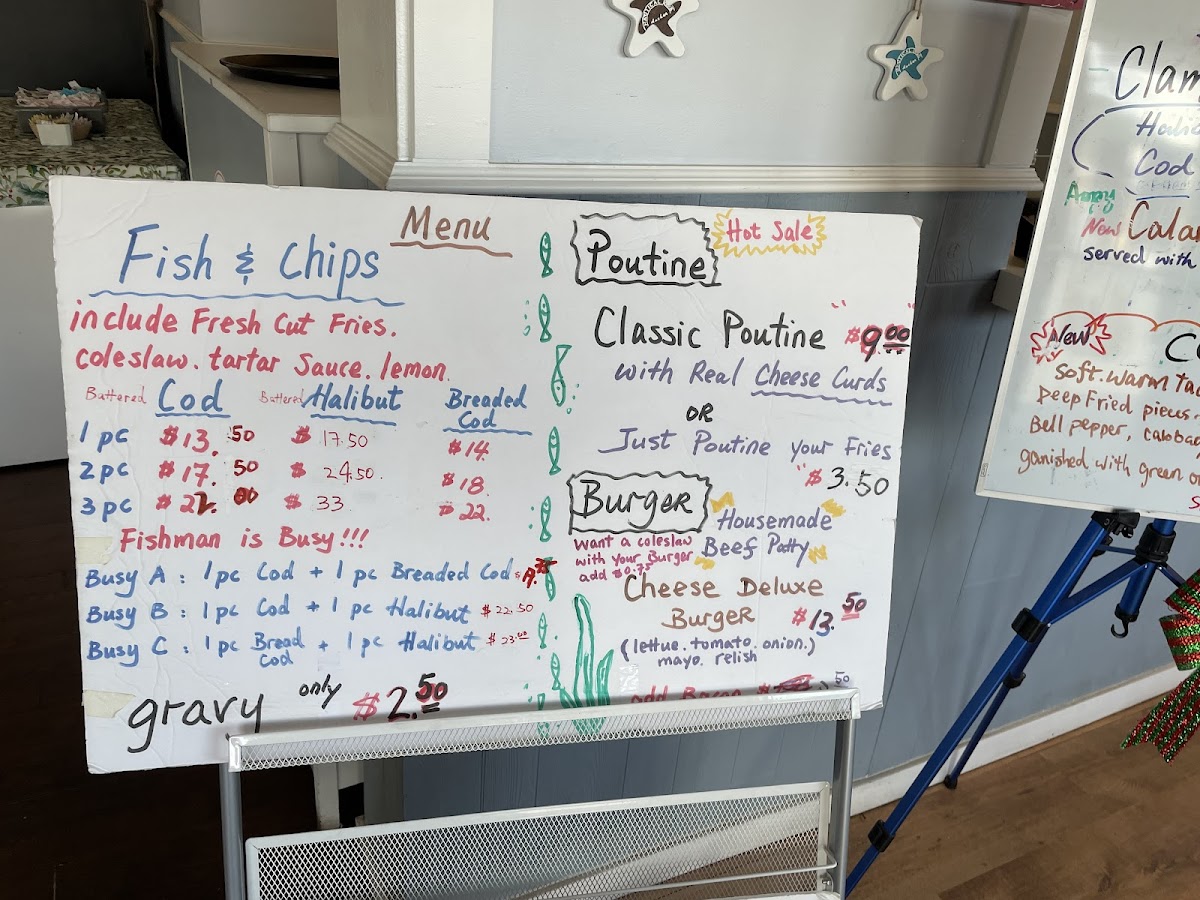 Menu
Fish & Chips
include Fresh Cut Fries.
coleslaw. tartar Sauce. lemon.
Battered Cod Battered Halibut Breaded Cod
1 pc $13.50 $17.50 $14.
2 pc $17.50 $24.50. $18.
3 pc $22.00 $33. $22.
Fishman is Busy!!!
Busy A : 1 pc Cod + 1 pc Breaded Cod
Busy B : 1 pc Cod + 1 pc Halibut $22.50
Busy C : 1 pc Bread Cod + 1 pc Halibut $23.00
gravy only $2.50
Poutine Hot Sale
Classic Poutine $9.00
with Real Cheese Curds
OR
Just Poutine your Fries
$3.50
Burger
Housemade
Beef Patty
Want a coleslaw
with your Burger
add $0.75
Cheese Deluxe
Burger $13.50
(lettue. tomato. onion.)
mayo. relish
add Bacon
Clam
Cod
New Cala
served with
New
Soft. warm Ta
Deep Fried pieces
Bell pepper, cabbag
ganished with green o